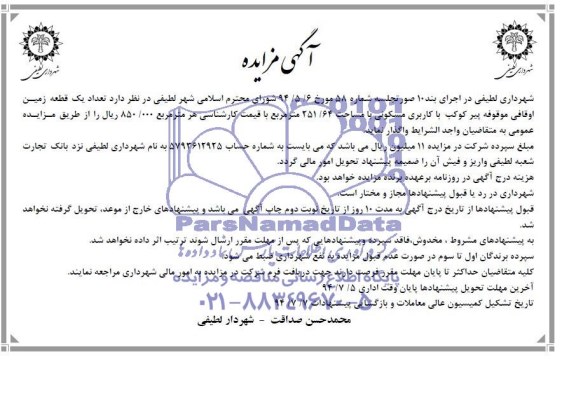 آگهی مزایده
شهرداری لطیفی
شهرداری لطیفی
شهرداری لطیفی در اجرای بند۱۰ صورتجلسه شماره ۵۸ مورخ ۹۴/۵/۶ شورای محترم اسلامی شهر لطیفی در نظر دارد تعداد یک قطعه زمین
اوقافی موقوفه پیر کوکب با کاربری مسکونی با مساحت ۲۵۱/۶۴ مترمربع با قیمت کارشناسی هر مترمربع ۸۵۰/۰۰۰ ریال را از طریق مزایده
عمومی به متقاضیان واجد الشرایط واگذار نماید.
مبلغ سپرده شرکت در مزایده ۱۱ میلیون ریال می باشد که می بایست به شماره حساب ۵۷۹۳۶۱۲۹۲۵ به نام شهرداری لطیفی نزد بانک تجارت
شعبه لطیفی واریز و فیش آن را ضمیمه پیشنهاد تحویل امور مالی گردد.
هزینه درج آگهی در روزنامه برعهده برنده مزایده خواهد بود.
شهرداری در رد یا قبول پیشنهادها مجاز و مختار است.
قبول پیشنهادها از تاریخ درج آگهی به مدت ۱۰ روز از تاریخ نوبت دوم چاپ آگهی می باشد و پیشنهادهای خارج از موعد، تحویل گرفته نخواهد
شد.
به پیشنهادهای مشروط ، مخدوش،فاقد سپرده وپیشنهادهایی که پس از مهلت مقرر ارشال شوند ترتیب اثر داده نخواهد شد.
سپرده برندگان اول تا سوم در صورت عدم قبول مزایده به نفع شهرداری ضبط می شود.
کلیه متقاضیان حداکثر تا پایان مهلت مقرر فرصت دارند جهت دریافت فرم شرکت در مزایده به امور مالی شهرداری مراجعه نمایند.
آخرین مهلت تحویل پیشنهادها پایان وقت اداری ۹۴/۷/۵
تاریخ تشکیل کمیسیون عالی معاملات و بازگشایی پیشنهادات ۹۴/۷/۷
محمدحسن صداقت - شهردار لطیفی
ParsNamadData
پایگاه اطلاع رسانی مناقصه و مزایده
۰۲۱-۸۸۳۴۹۶۷۰-۵